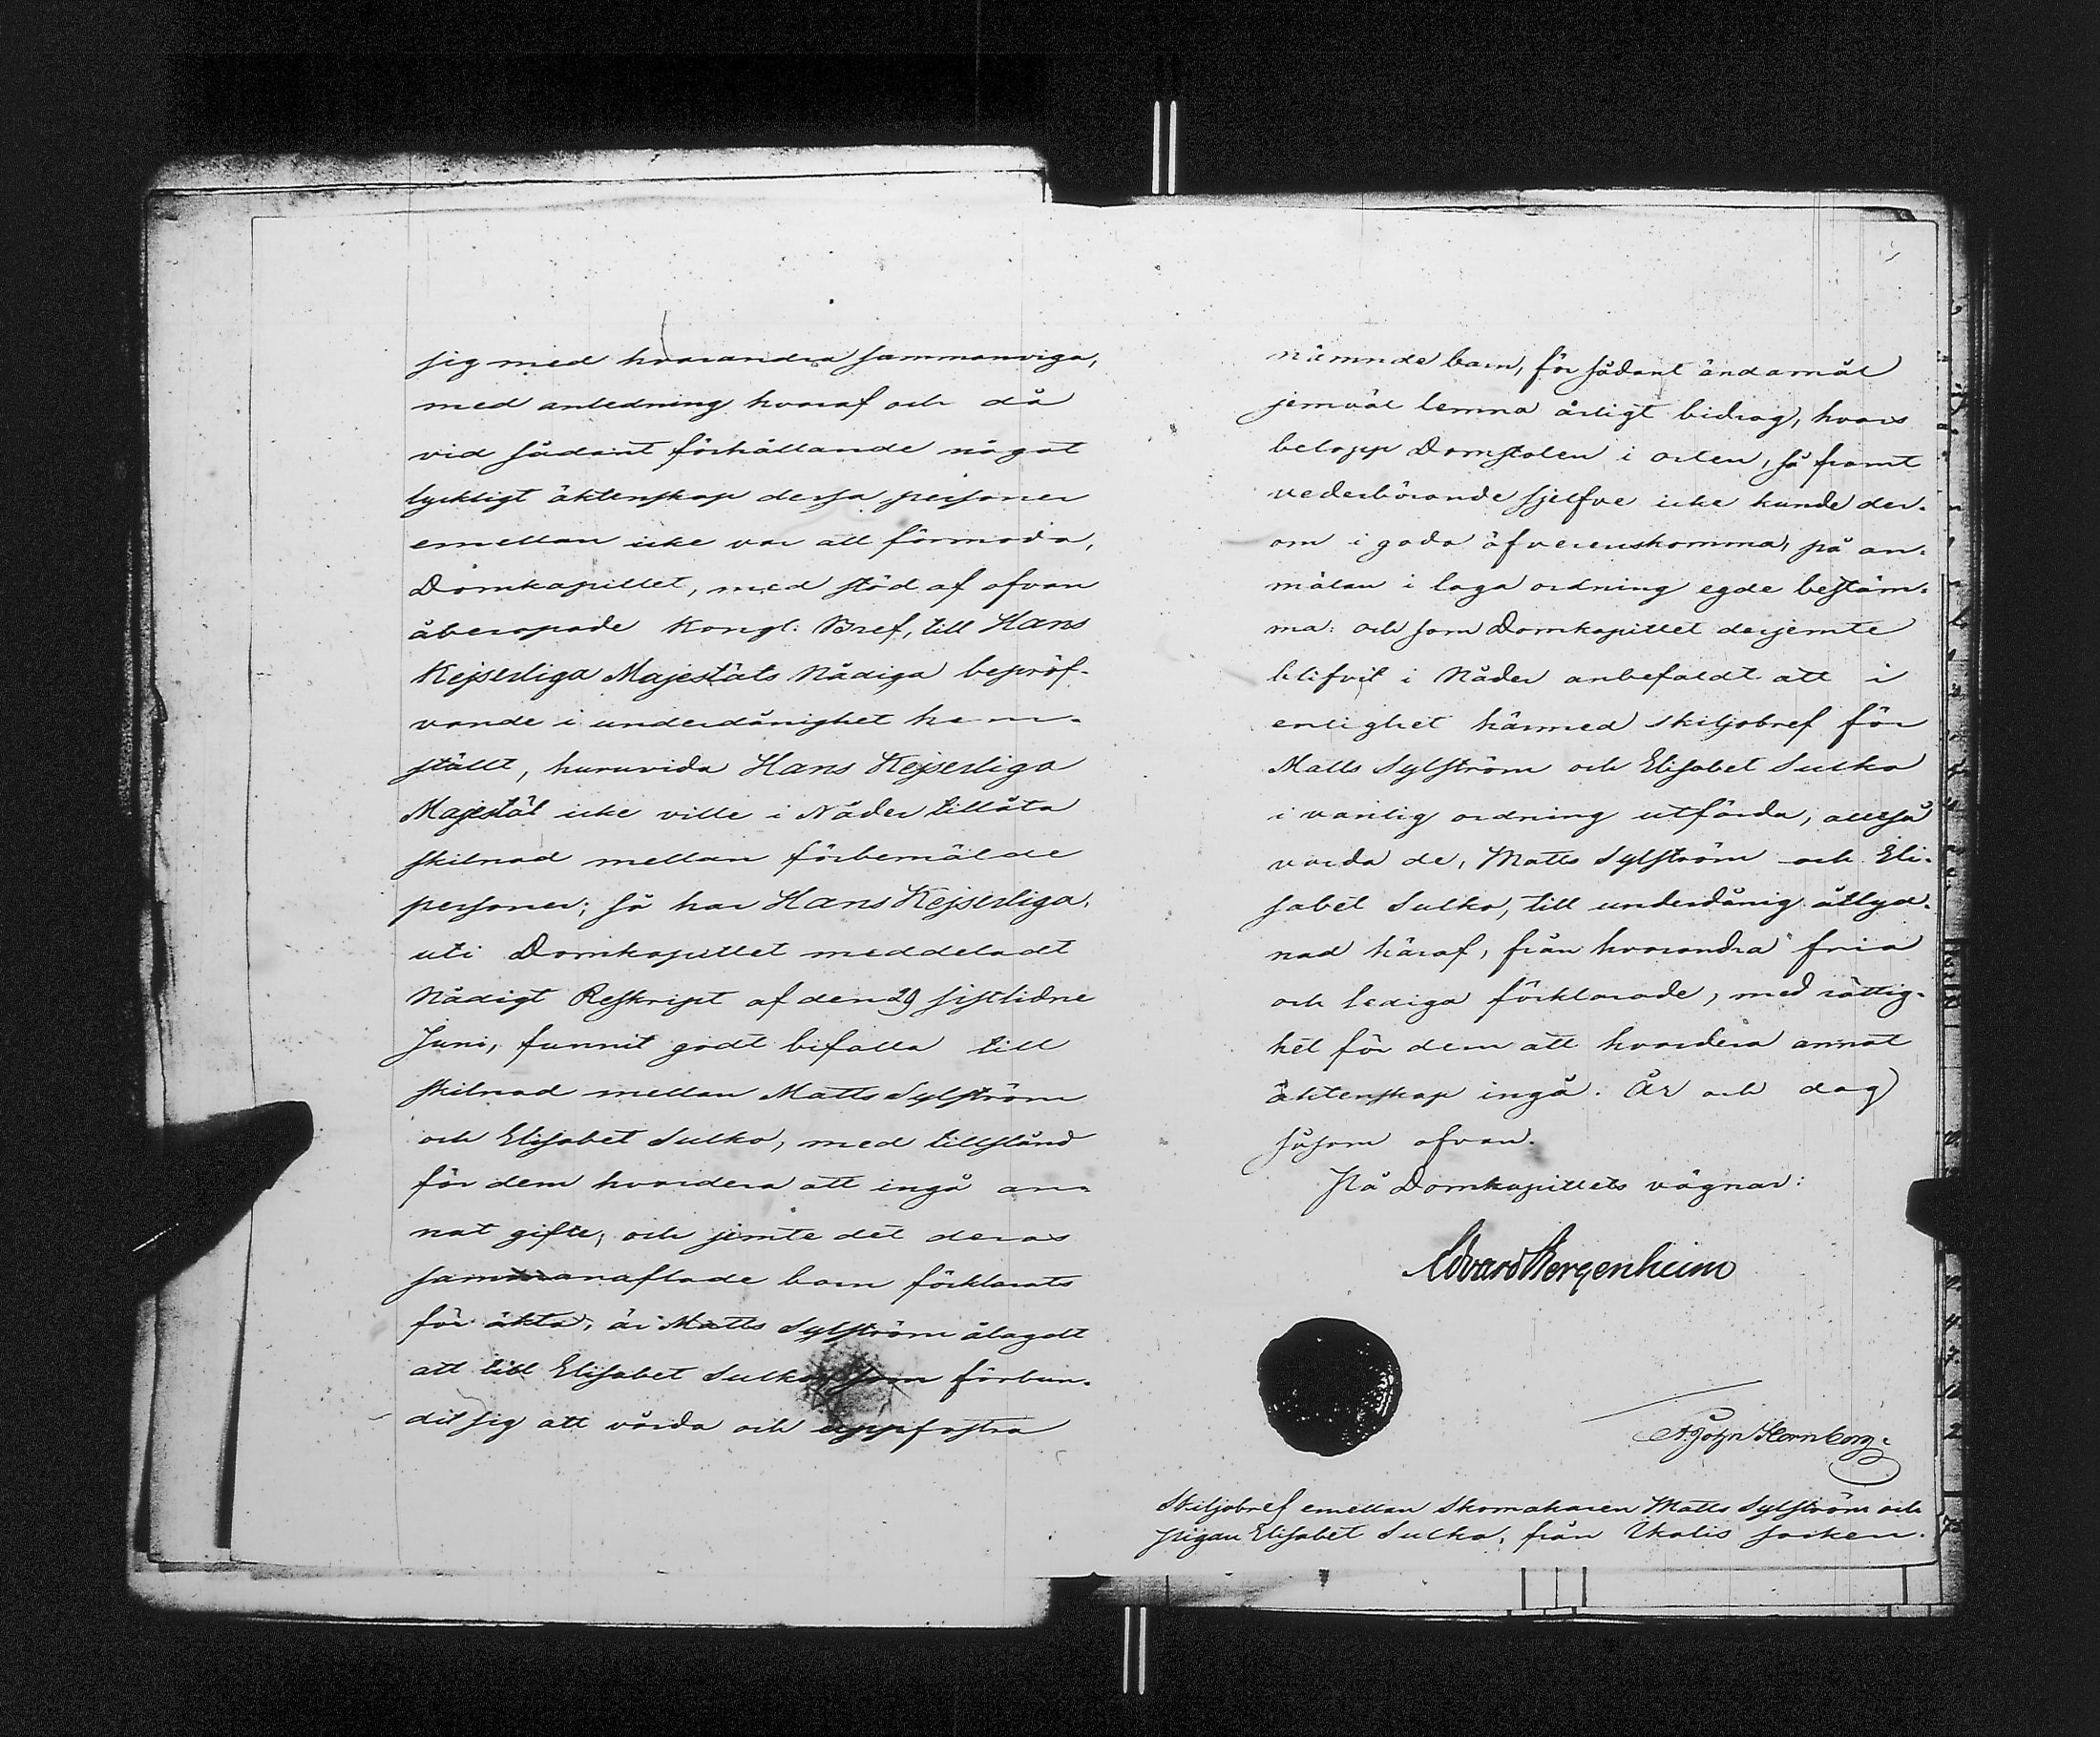 sig med hvarandra sammanviga,
med anledning hvaraf och då
vid sådant förhållande något
lyckligt äktenskap dessa personer
emellan icke var att förmoda,
Domkapitlet, med stöd af ofvan
åberopade Kongl: Bref, till Hans
Kejserliga Majestäts Nådiga bepröf-
vande i underdånighet hem-
stält, huruvida Hans Kejserliga
Majestät icke ville i Nåder tillåta
skilnad mellan förbemälde
personer; så har Hans Kejserliga,
uti Domkapitlet meddeladt
Nådigt Reskript af den 29 sistlidne
Juni, funnit godt bifalla till
skilnad mellan Matts Sylström
och Elisabet Sulko, med tillstånd
för dem hvardera att ingå an-
nat gifte, och jemte det deras
sammanaflade barn förklarats
för äkta, är Matts Sylström ålagdt
att till Elisabet Sulko, som förbun-
dit sig att vårda och uppfostra
nämnde barn, för sådant ändamål
jemväl lemna årligt bidrag, hvars
belopp Domstolen i orten, så framt
vederbörande sjelfve icke kunde der-
om i godo öfverenskomma, på an-
mälan i laga ordning egde bestäm-
ma: och som Domkapitlet derjemte
blifvit i Nåder anbefaldt att i
enlighet härmed skiljobref för
Matts Sylström och Elisabet Sulko
i vanlig ordning utfärda, alltså
varda de, Matts Sylström och Eli-
sabet Sulko, till underdånig åtlyd-
nad häraf, från hvarandra fria
och lediga förklarade, med rättig-
het för dem att hvardera annat
äktenskap ingå. År och dag
såsom ofvan.
På Domkapitlets vägnar:
Edvard Bergenheim
Hornborg.
Skiljobref emellan Skomakaren Matts Sylström och
pigan Elisabet Sulko, från Ikalis socken.